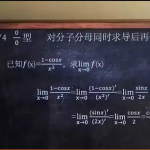 4 0/0 型 对分子分母同时求导后再
已知f(x)=(1-cosx)/x², 求lim x→0 f(x)
lim x→0 (1-cosx)/x² = lim x→0 (1-cosx)'/(x²)' = lim x→0 sinx/2x
= lim x→0 (sinx)'/(2x)' = lim x→0 cosx/2 = cos